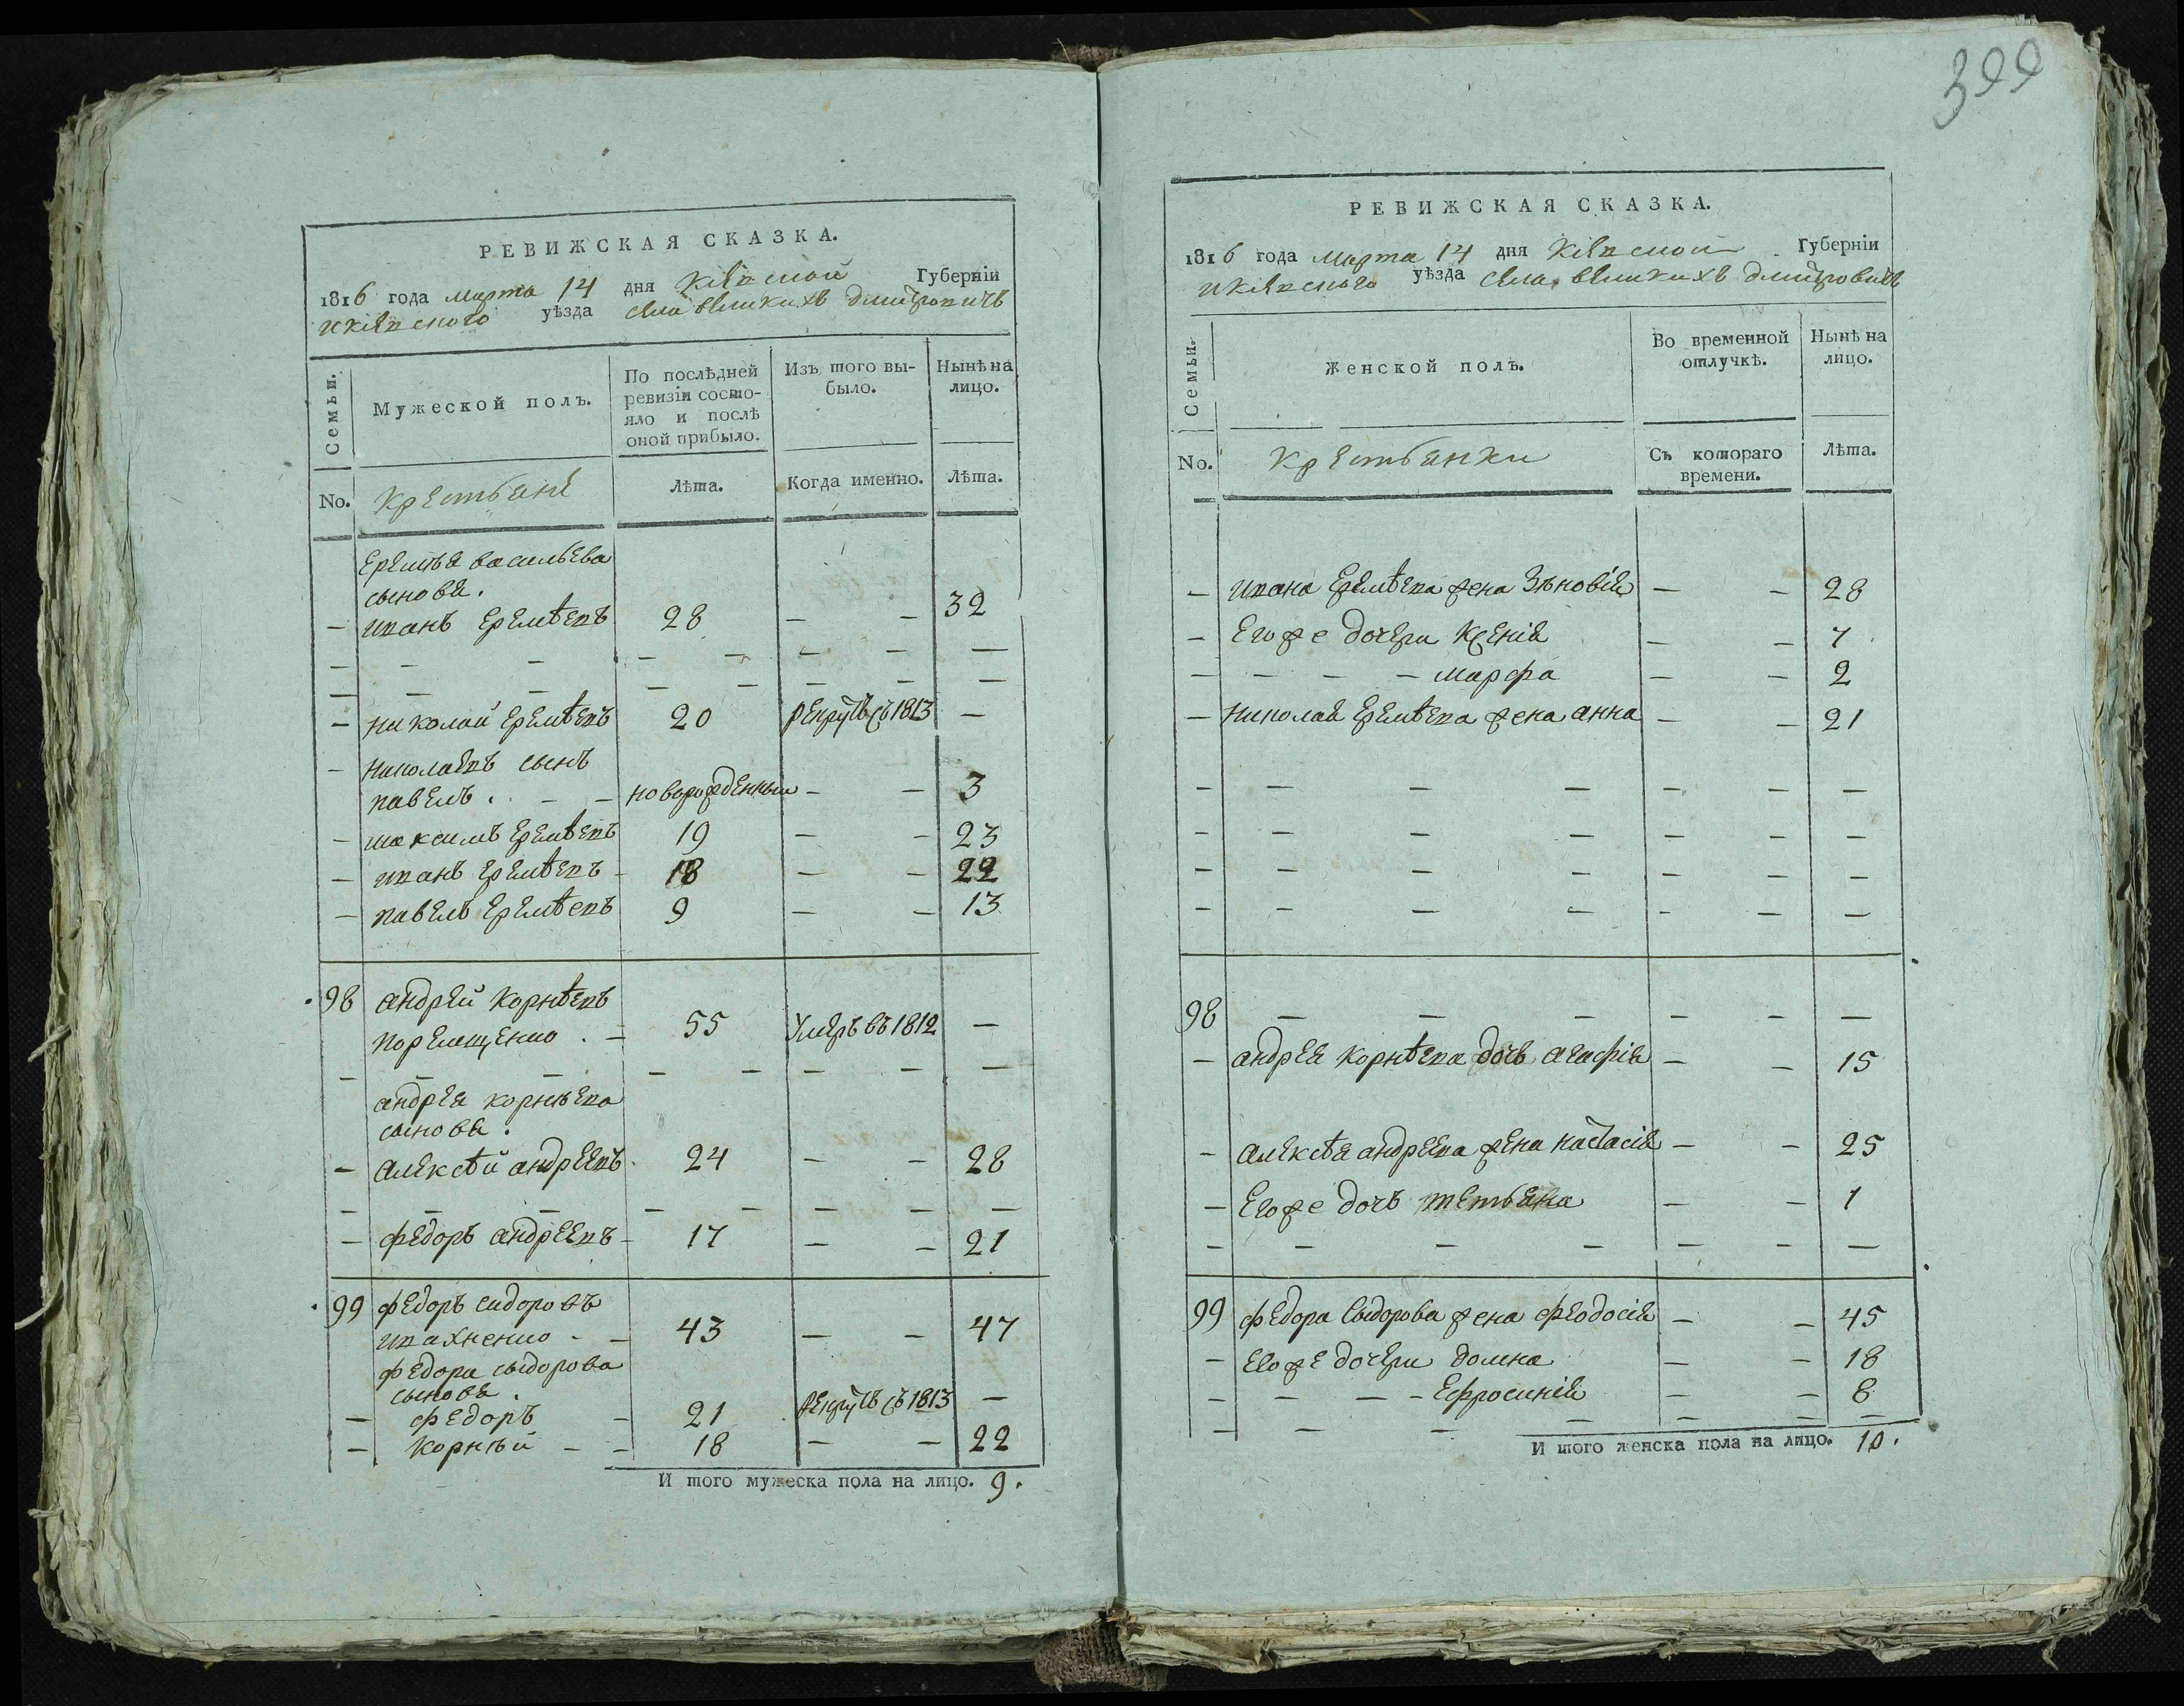 РЕВИЖСКАЯ СКАЗКА.
1816 года марта 14 дня Кіевской Губерніи
и Кіевского уѣзда села великихъ дмитровичъ
Семьи. Мужеской полъ. По послѣдней ревизіи состо-яло и послѣ оной прибыло. Изъ того вы-было. Нынѣ на лицо.
No. Крестьяне Лѣта. Когда именно. Лѣта.
Еремѣя васильева
сыновя.
— иванъ Еремѣевъ 28 — — 32
— — — — — — — —
— — — — — — — —
— николай Еремѣевъ 20 рекрутъ съ 1813 —
— николаевъ сынъ
павелъ. — — новорожденный — — 3
— максимъ Еремѣевъ 19 — — 23
— иванъ Еремѣевъ — 18 — — 22
— павелъ Еремѣевъ 9 — — 13
98 андрей Корнѣевъ
55 Умеръ въ 1812 —
— — — — — — — —
андрея корнѣева
сыновя.
— алексѣй андреевъ 24 — — 28
— — — — — — — —
— федоръ андреевъ — 17 — — 21
99 федоръ сидоровъ
ивахненко — — 43 — — 47
федора сыдорова
сыновя.
— федоръ — 21 рекрутъ съ 1813 —
— корнѣй — — 18 — — 22
И того мужеска пола на лицо. 9.
300
РЕВИЖСКАЯ СКАЗКА.
1816 года марта 14 дня Кіевской Губерніи
и Кіевского уѣзда села великихъ дмитровичъ
Семьи. Женской полъ. Во временной отлучкѣ. Нынѣ на лицо.
No. Крестьянки Съ котораго времени. Лѣта.
— ивана Еремѣева жена Зѣновія — — 28
— Его же дочери Ксенія — — 7
— — — — марфа — — 2
— николая Еремѣева жена анна — — 21
— — — — — — —
— — — — — — —
— — — — — — —
— — — — — — —
98 — — — — — —
— андрея корнѣева дочь агафія — — 15
— алексѣя андреева жена настасія — — 25
— Его же дочь тетьяна — — 1
— — — — — — —
99 федора Сыдорова жена феодосія — — 45
— Его же дочери домна — — 18
— — — — Ефросинія — — 8
— — — — — — —
И того женска пола на лицо. 10.